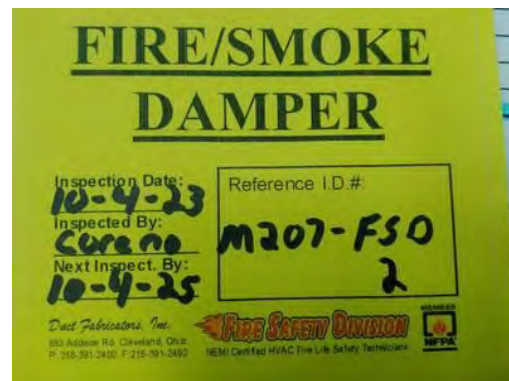 FIRE/SMOKE
DAMPER
Inspection Date:
10-4-23
Inspected By:
Corano
Next Inspect. By:
10-4-25
Reference I.D.#:
M207-FSD
2
Duct Fabricators, Inc.
883 Addison Rd. Cleveland, Ohio
P: 216-391-2400 F: 216-391-2492
FIRE SAFETY DIVISION
NEMI Certified HVAC Fire Life Safety Technicians
MEMBER
NFPA